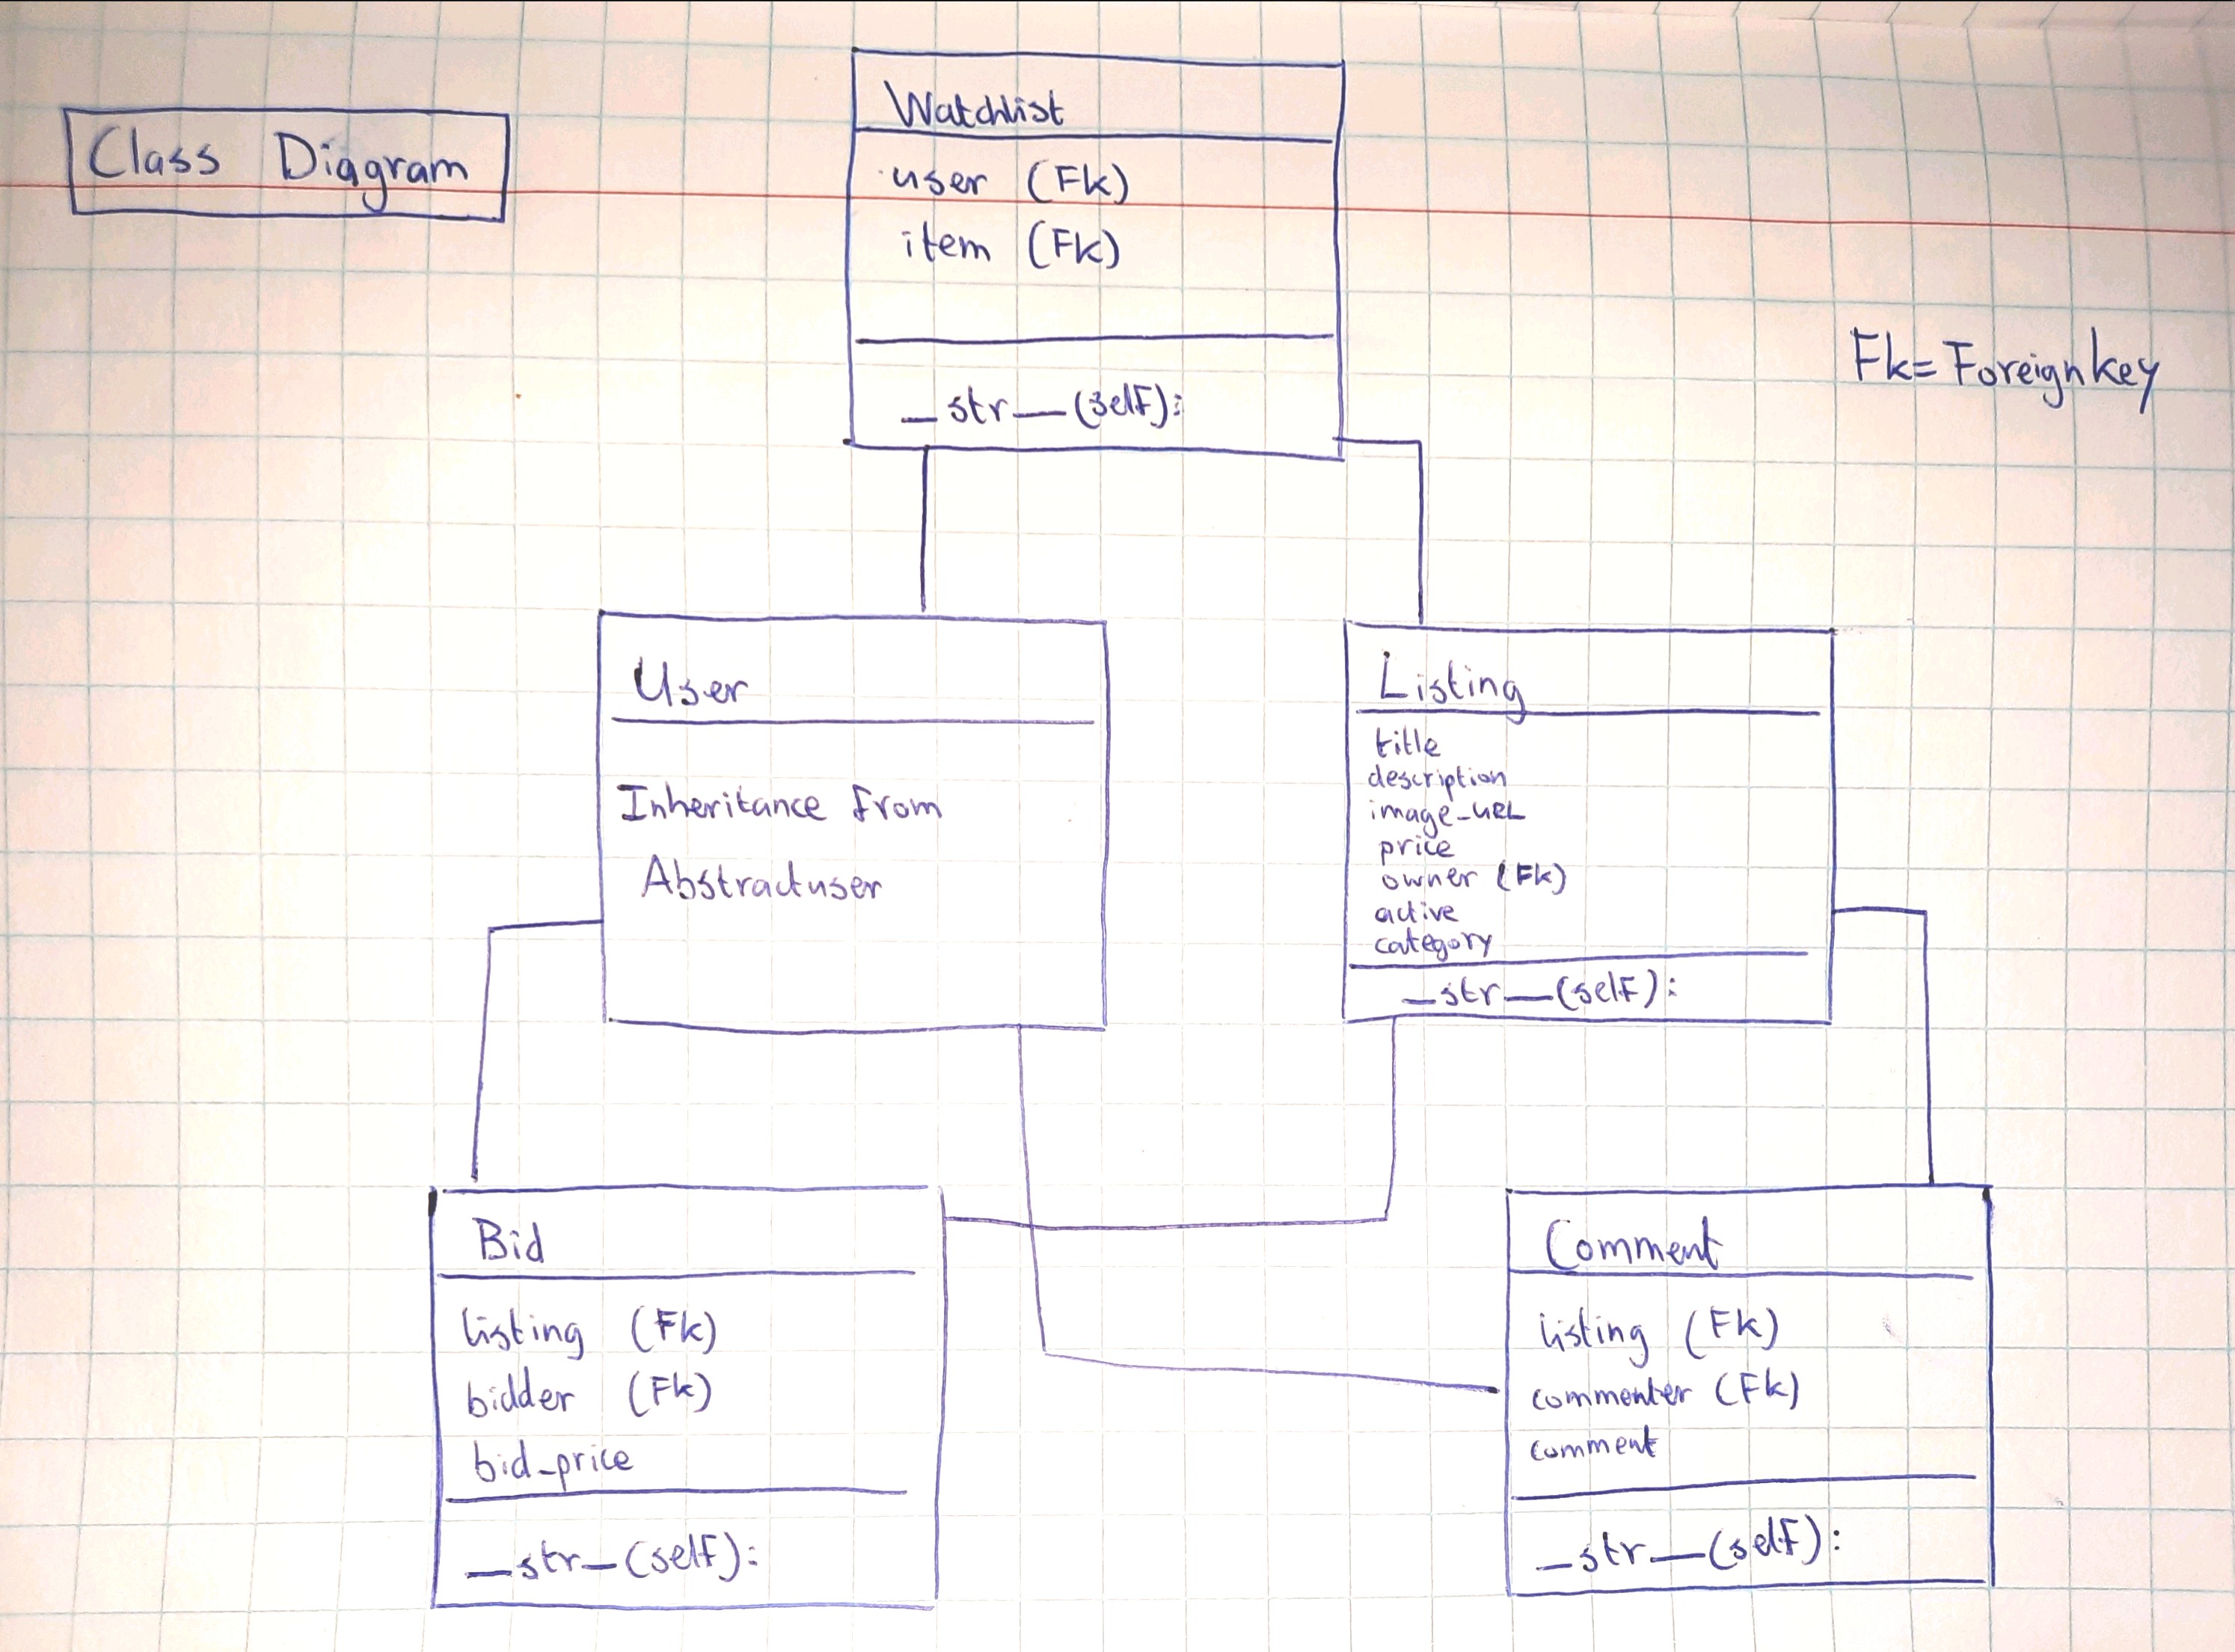 Class Diagram
Watchlist
user (Fk)
item (Fk)
_str__(self):
Fk= Foreignkey
User
Inheritance from
Abstractuser
Listing
title
description
image_URL
price
owner (Fk)
active
category
_str__(self):
Bid
listing (Fk)
bidder (Fk)
bid_price
__str_(self):
Comment
listing (Fk)
commenter (Fk)
comment
_str__(self):